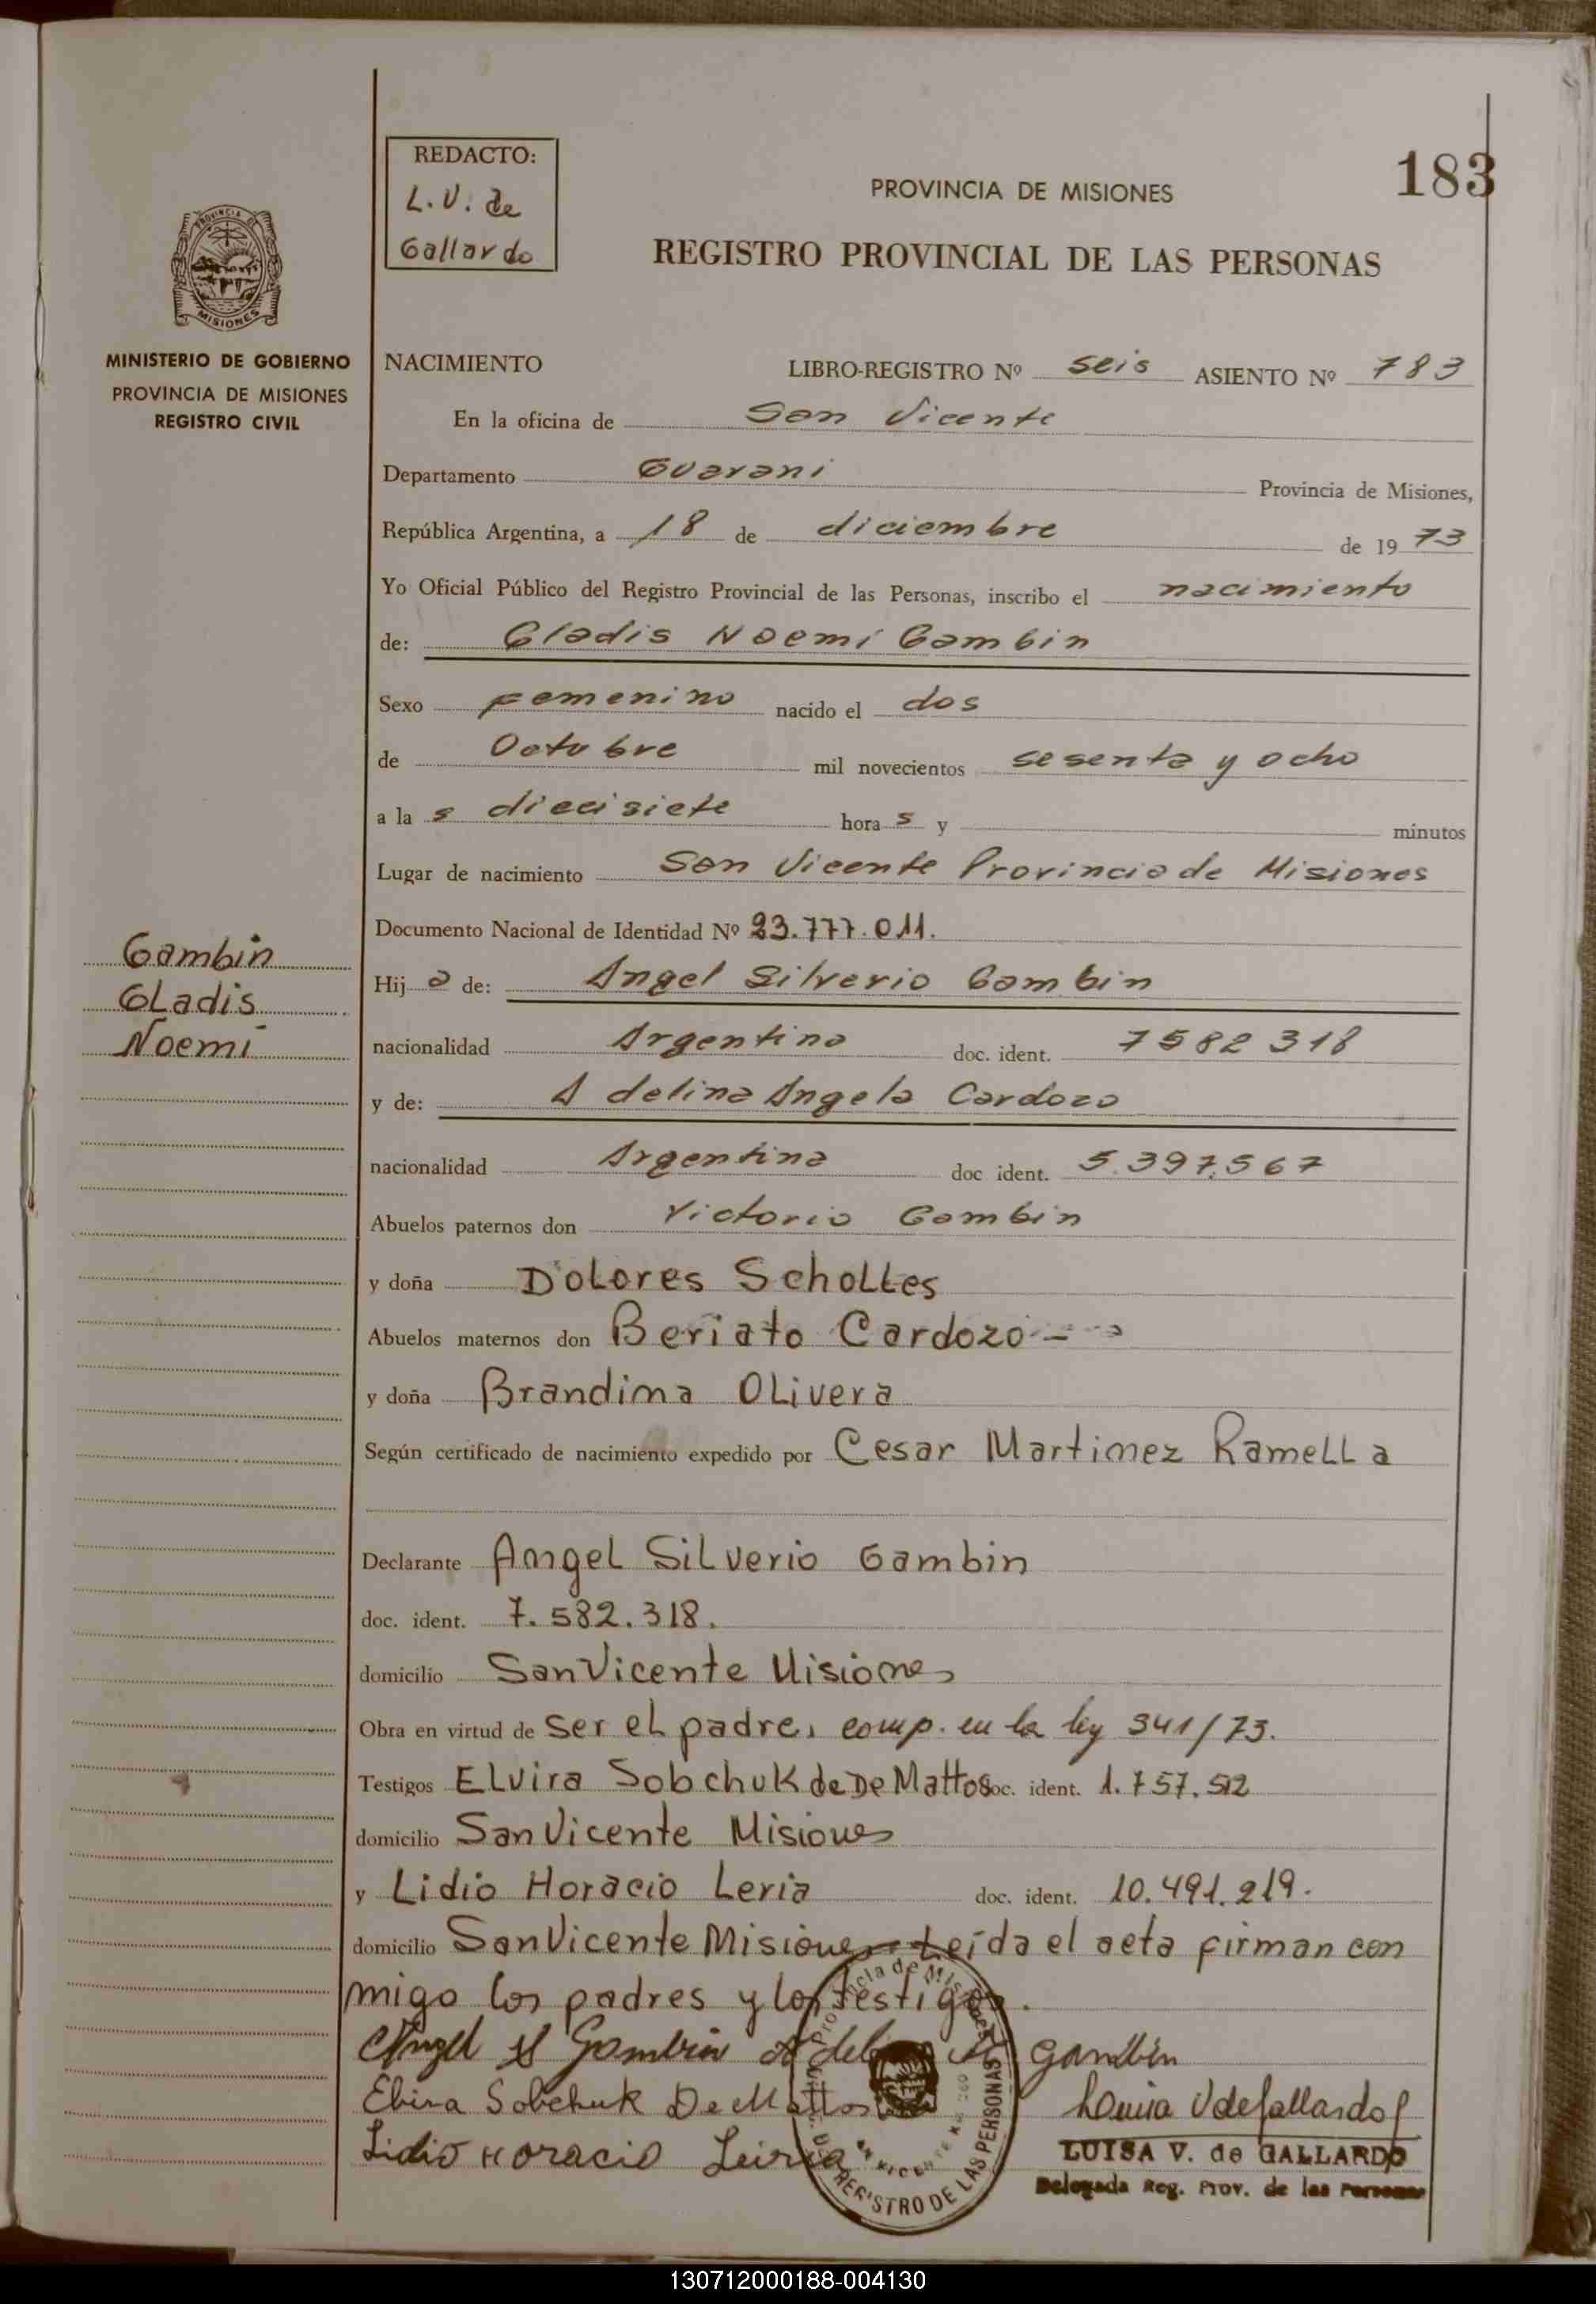 183
REDACTO:
L.V. de
Gallardo
PROVINCIA DE MISIONES
REGISTRO PROVINCIAL DE LAS PERSONAS
PROVINCIA DE
MISIONES
MINISTERIO DE GOBIERNO
PROVINCIA DE MISIONES
REGISTRO CIVIL
Gambin
GLadis
Noemí
NACIMIENTO LIBRO-REGISTRO Nº seis ASIENTO Nº 783
En la oficina de San Vicente
Departamento Guarani Provincia de Misiones,
República Argentina, a 18 de diciembre de 19 73
Yo Oficial Público del Registro Provincial de las Personas, inscribo el nacimiento
de: Gladis Noemí Gambin
Sexo femenino nacido el dos
de Octubre mil novecientos sesenta y ocho
a la s diecisiete hora s y minutos
Lugar de nacimiento San Vicente Provincia de Misiones
Documento Nacional de Identidad Nº 23.777.011.
Hij a de: Angel Silverio Gambin
nacionalidad Argentina doc. ident. 7582318
y de: Adelina Angela Cardozo
nacionalidad Argentina doc ident. 5.397.567
Abuelos paternos don Victorio Gambin
y doña DoLores SchoLLes
Abuelos maternos don Beriato Cardozo -
y doña Brandima OLivera
Según certificado de nacimiento expedido por Cesar Martimez RameLLa
Declarante AngeL SiLverio Gambin
doc. ident. 7.582.318.
domicilio San Vicente Misiones
Obra en virtud de ser eL padre, comp. en la ley 341/73.
Testigos ELvira Sobchuk de De Mattos doc. ident. 1.757.512
domicilio San Vicente Misiones
y Lidio Horacio Leria doc. ident. 10.491.219.
domicilio San Vicente Misiones Leída el acta firman con
migo los padres y los testigos.
Angel S Gambin Gambin
Elvira Sobchuk De Mattos
Luisa V de Gallardo
Lidio Horacio Leiria
LUISA V. de GALLARDO
Delegada Reg. Prov. de las Personas
Provincia de Misiones
REGISTRO DE LAS PERSONAS
130712000188-004130